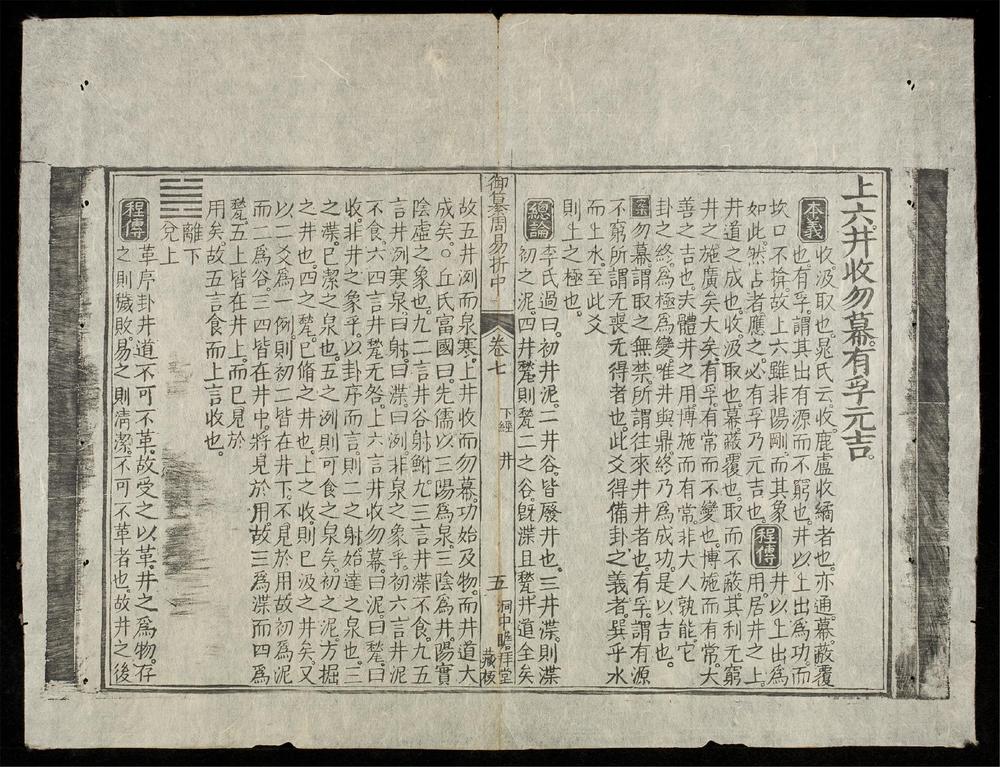 上六井收勿幕有孚元吉。
本義
收汲取也。晁氏云。收。鹿盧收繘者也。亦通。幕。蔽覆
也。有孚。謂其出有源而不窮也。井以上出爲功。而
坎口不揜。故上六雖非陽剛。而其象
如此。然占者應之。必有孚乃元吉也。
程傳
井以上出爲
用。居井之上。
井道之成也。收。汲取也。幕。蔽覆也。取而不蔽。其利无窮。
井之施廣矣大矣。有孚。有常而不變也。博施而有常。大
善之吉也。夫體井之用。博施而有常。非大人孰能。它
卦之終。爲極爲變。唯井與鼎終乃爲成功。是以吉也。
勿幕謂取之無禁。所謂往來井井者也。有孚。謂有源
不窮。所謂无喪无得者也。此爻得備卦之義者。巽乎水
而上水。至此爻
則上之極也。
總論
李氏過曰。初井泥。二井谷。皆廢井也。三井渫。則渫
初之泥。四井甃。則甃二之谷。旣渫且甃。井道全矣
御纂周易折中
卷七
下經
井
五
洞中
拜堂
藏板
故五井洌而泉寒。上井收而勿幕。功始及物。而井道大
成矣。○丘氏富國曰。先儒以三陽爲泉。三陰爲井。陽實
陰虛之象也。九二言井谷射鮒。九三言井渫不食。九五
言井洌寒泉。曰射。曰渫。曰洌。非泉之象乎。初六言井泥
不食。六四言井甃无咎。上六言井收勿幕。曰泥。曰甃。曰
收。非井之象乎。以卦序而言。則二之射。始達之泉也。三
之渫。已潔之泉也。五之洌。則可食之泉矣。初之泥。方掘
之井也。四之甃。已脩之井也。上之收。則已汲之井矣。又
以二爻爲一例。則初二皆在井下。不見於用。故初爲泥
而二爲谷。三四皆在井中。將見於用。故三爲渫而四爲
甃。五上皆在井上。而已見於
用矣。故五言食而上言收也。
離下
兌上
程傳
革。序卦。井道不可不革。故受之以革。井之爲物。存
之則穢敗。易之則清潔。不可不革者也。故井之後